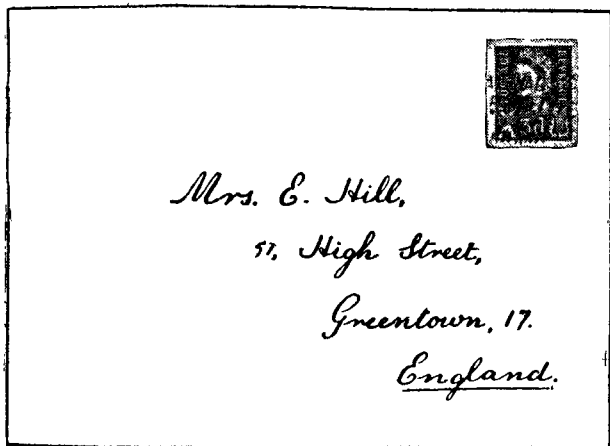 Mrs. E. Hill,
57, High Street,
Greentown, 17.
England.